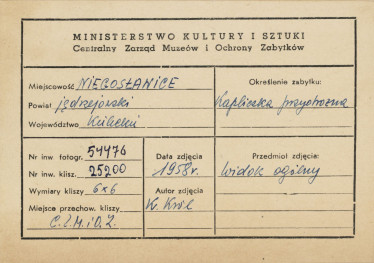 MINISTERSTWO KULTURY I SZTUKI
Centralny Zarząd Muzeów i Ochrony Zabytków
Miejscowość NIEGOSŁANICE
Powiat jędrzejowski
Województwo Kielecki
Określenie zabytku:
Kapliczka przydrożna
Nr inw fotogr. 54476
Nr inw. klisz. 25200
Wymiary kliszy 6x6
Miejsce przechow. kliszy
C.Z.M.iO.Z.
Data zdjęcia
1958r.
Autor zdjęcia
K. Król
Przedmiot zdjęcia:
widok ogólny